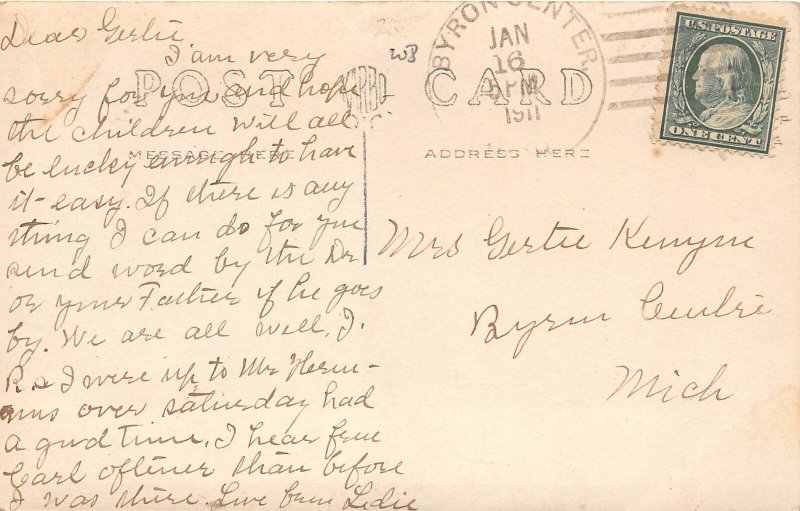 Dear Gertie
I am very
sorry for you and hope
the children will all
be lucky enough to have
it easy. If there is any
thing I can do for you
send word by the Dr
or your Father if he goes
by. We are all well, J.
R. & I were up to Mr Herm-
ans over saturday had
a good time. I hear from
Earl oftener than before
I was there. Love from
POST CARD
MESSAGE HERE
ADDRESS HERE
BYRON CENTER
JAN
16
5 PM
1911
U.S. POSTAGE
ONE CENT
Mrs Gertie Kenyon
Byron Centre
Mich